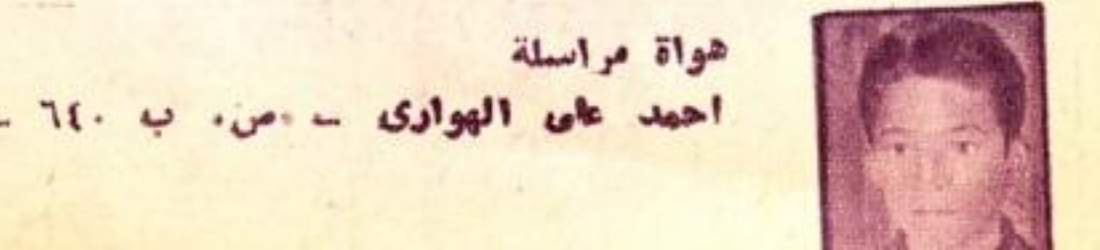 هواة مراسلة
احمد على الهوارى - ص. ب ٦٤٠ -